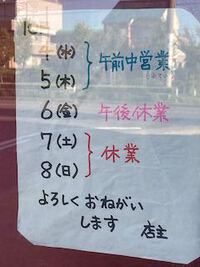 4(水)
5(木) } 午前中営業
6(金) 午後休業
7(土)
8(日) } 休業
よろしくおねがい
します 店主